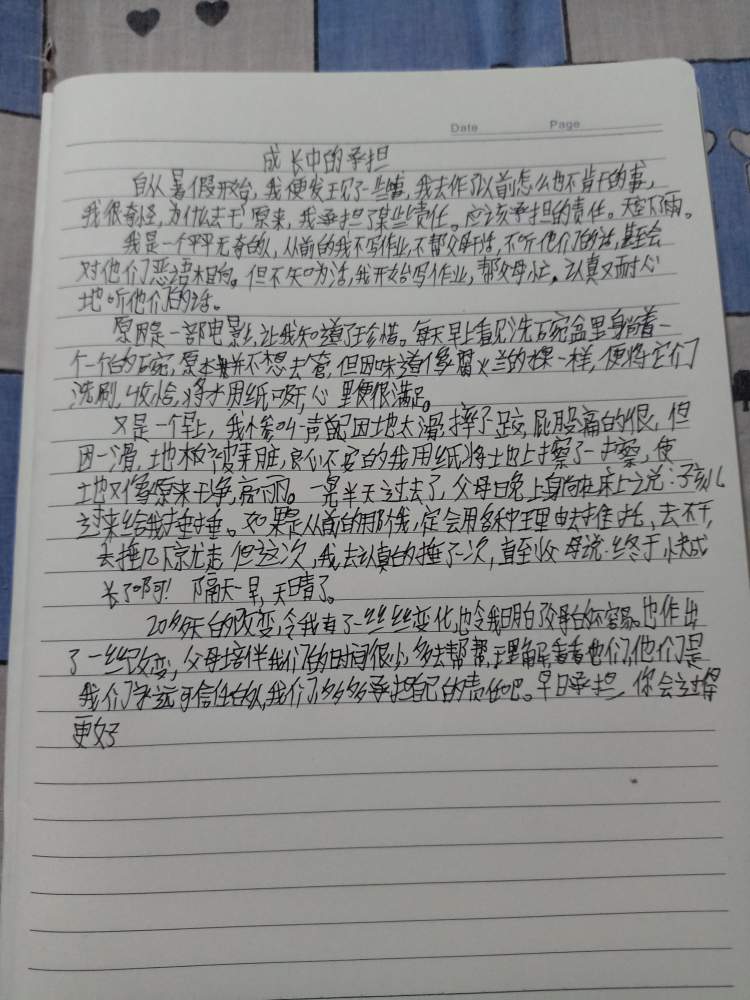 Date Page
成长中的承担
自从暑假开始,我便发现了一些事,我去作了以前怎么也不肯干的事,
我很奇怪,为什么去干 原来,我承担了某些责任。应该承担的责任。天空下雨。
我是一个平平无奇的人,从前的我不写作业,不帮父母干活,不听他们的话,甚至会
对他们恶语相向。但不知为活,我开始写作业,帮父母忙。认真又耐心
地听他们的话。
原因是一部电影,让我知道了珍惜。每天早上看见洗碗盆里躺着一
个个的碗,原本我并不想去管,但因味道像腐烂的果一样,便将它们
洗刷,收拾,将水用纸吸干,心里便很满足。
又是一个早上,我惨叫一声 因地太滑,摔了一跤,屁股痛的很,但
因一滑,地板被弄脏,良心不安的我用纸将地上擦了一擦,使
地又像原来干净,高雨。一晃半天过去了,父母晚上躺在床上说:孩儿
过来给我捶捶。如果是从前的那个我,定会用各种理由去推托,去不干,
去捶几下就走 但这次,我去认真的捶了一次,直至 母说:终于快成
长了啊! 隔天一早,天晴了。
20多天的改变,令我有了一丝丝变化,也令我明白了父母的不容易。也作出
了一丝改变,父母培伴我们的时间很少,多去帮帮,理解看看他们,他们是
我们永远可信任的人,我们多多承担自己的责任吧。早日承担,你会过得
更好